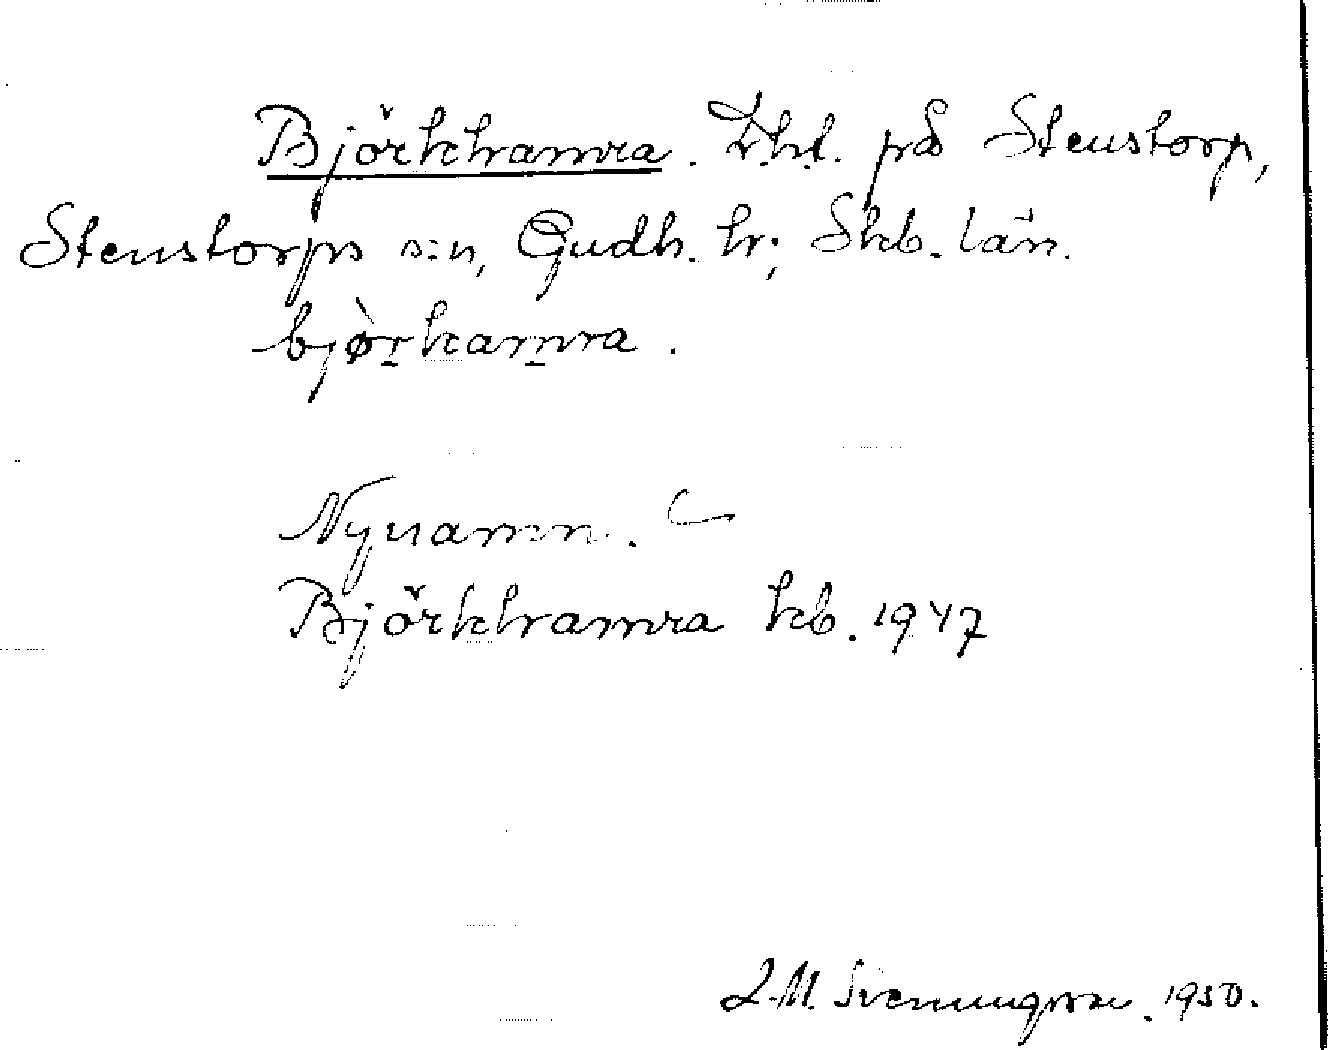 Björkhamra. Lht. på Stenstorp,
Stenstorps s:n, Gudh. hr; Skb. län.
bjò̱rkam̱ra.
Nynamn.
Björkhamra kb. 1947
Svenungsson. 1950.